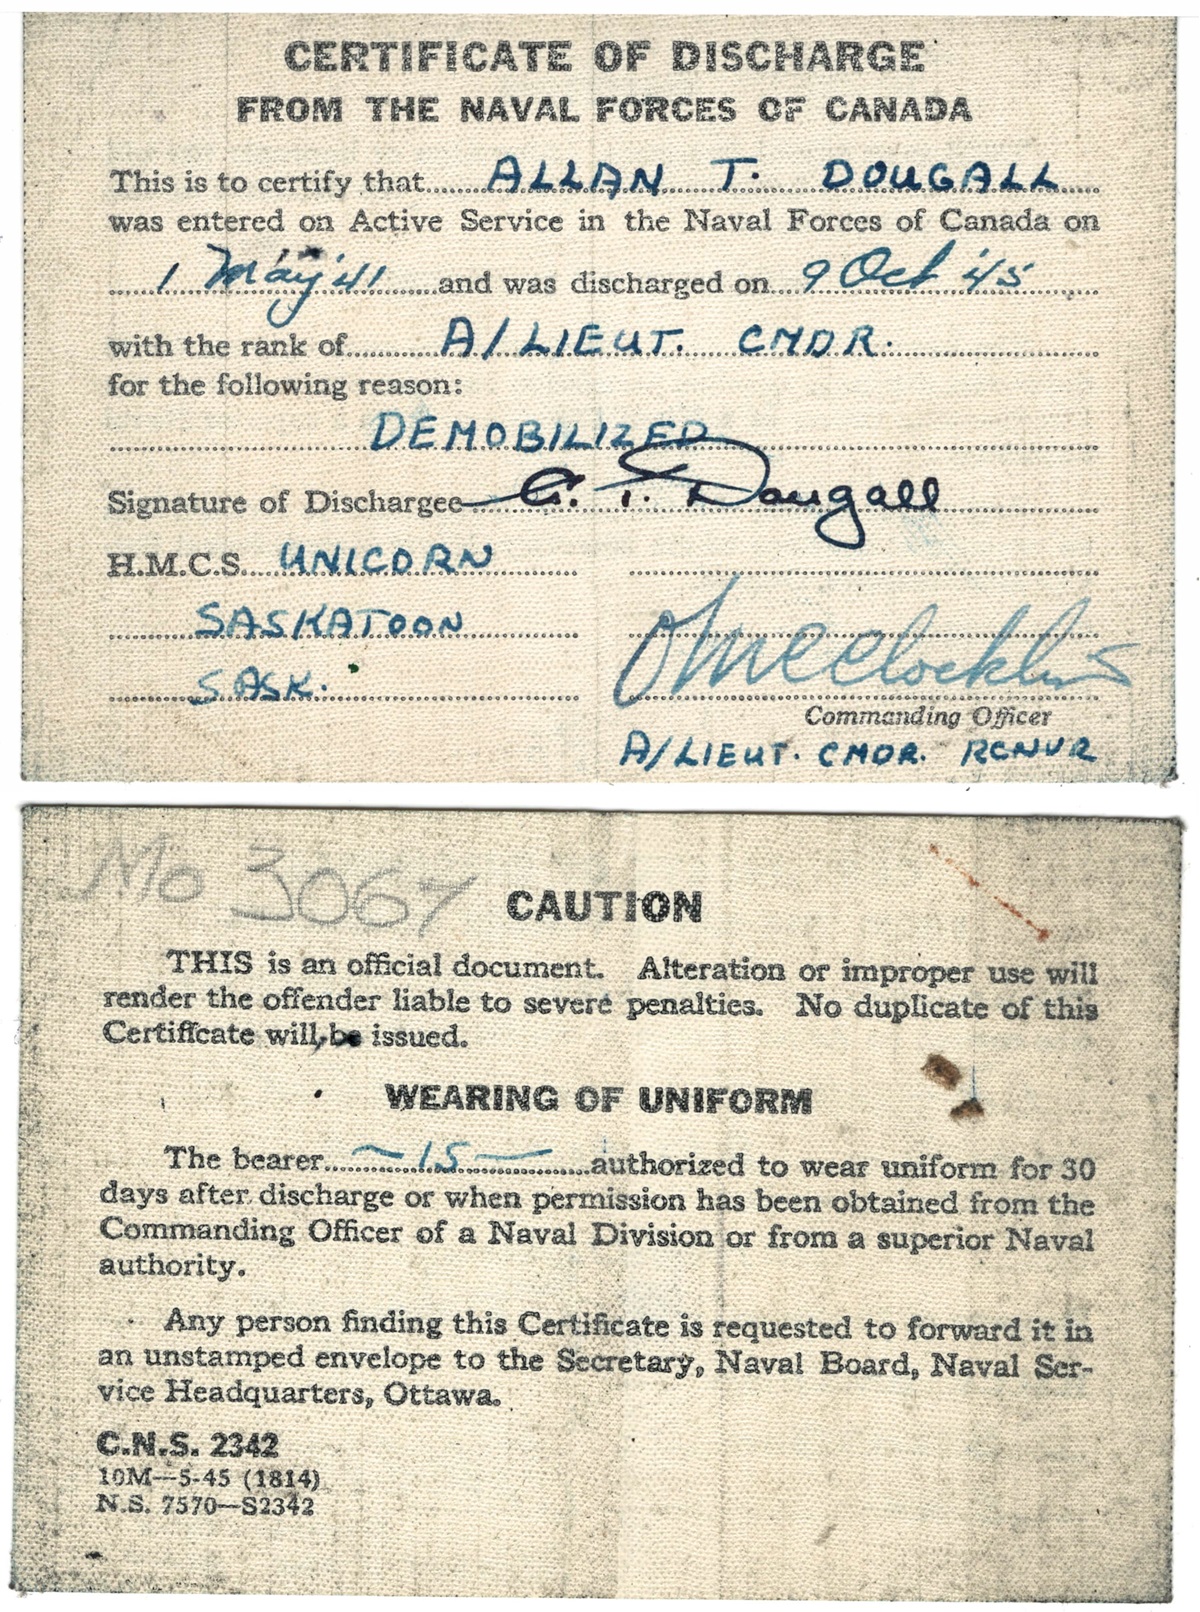 CERTIFICATE OF DISCHARGE
FROM THE NAVAL FORCES OF CANADA
This is to certify that ALLAN T. DOUGALL
was entered on Active Service in the Naval Forces of Canada on
1 May '41 and was discharged on 9 Oct '45
with the rank of A/LIEUT. CMDR.
for the following reason:
DEMOBILIZED
Signature of Dischargee A. T. Dougall
H.M.C.S. UNICORN
SASKATOON
SASK.
Commanding Officer
A/LIEUT. CMDR. RCNVR
No 3067
CAUTION
THIS is an official document. Alteration or improper use will
render the offender liable to severe penalties. No duplicate of this
Certificate will be issued.
WEARING OF UNIFORM
The bearer ~IS— authorized to wear uniform for 30
days after discharge or when permission has been obtained from the
Commanding Officer of a Naval Division or from a superior Naval
authority.
Any person finding this Certificate is requested to forward it in
an unstamped envelope to the Secretary, Naval Board, Naval Ser-
vice Headquarters, Ottawa.
C.N.S. 2342
10M—5-45 (1814)
N.S. 7570—S2342